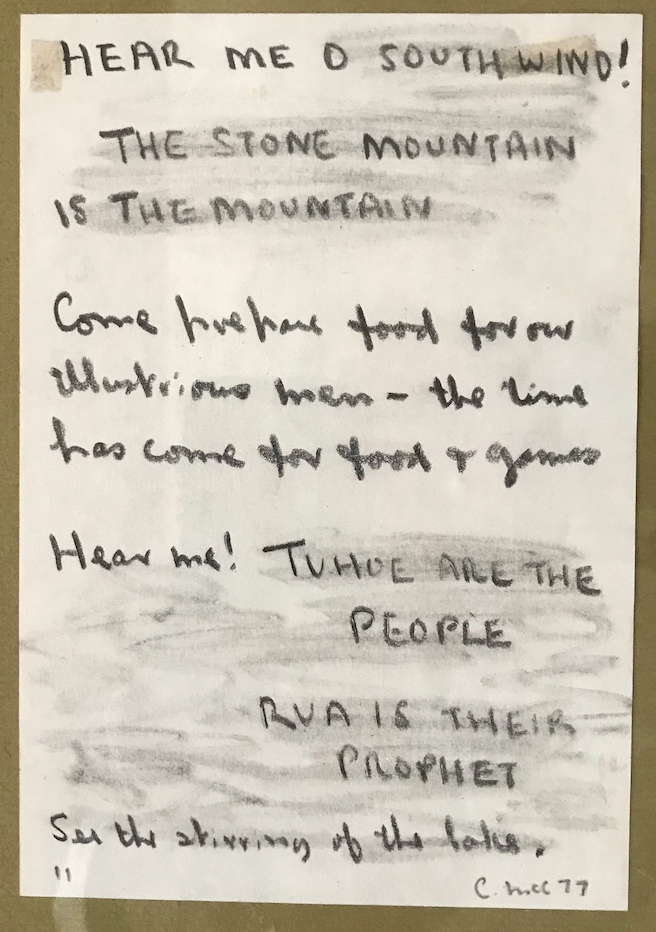 HEAR ME O SOUTH WIND!
THE STONE MOUNTAIN
IS THE MOUNTAIN
Come prepare food for our
illustrious men – the time
has come for food & games
Hear me! TUHOE ARE THE
PEOPLE
RUA IS THEIR
PROPHET
See the stirring of the lake.
"
C. McC 77